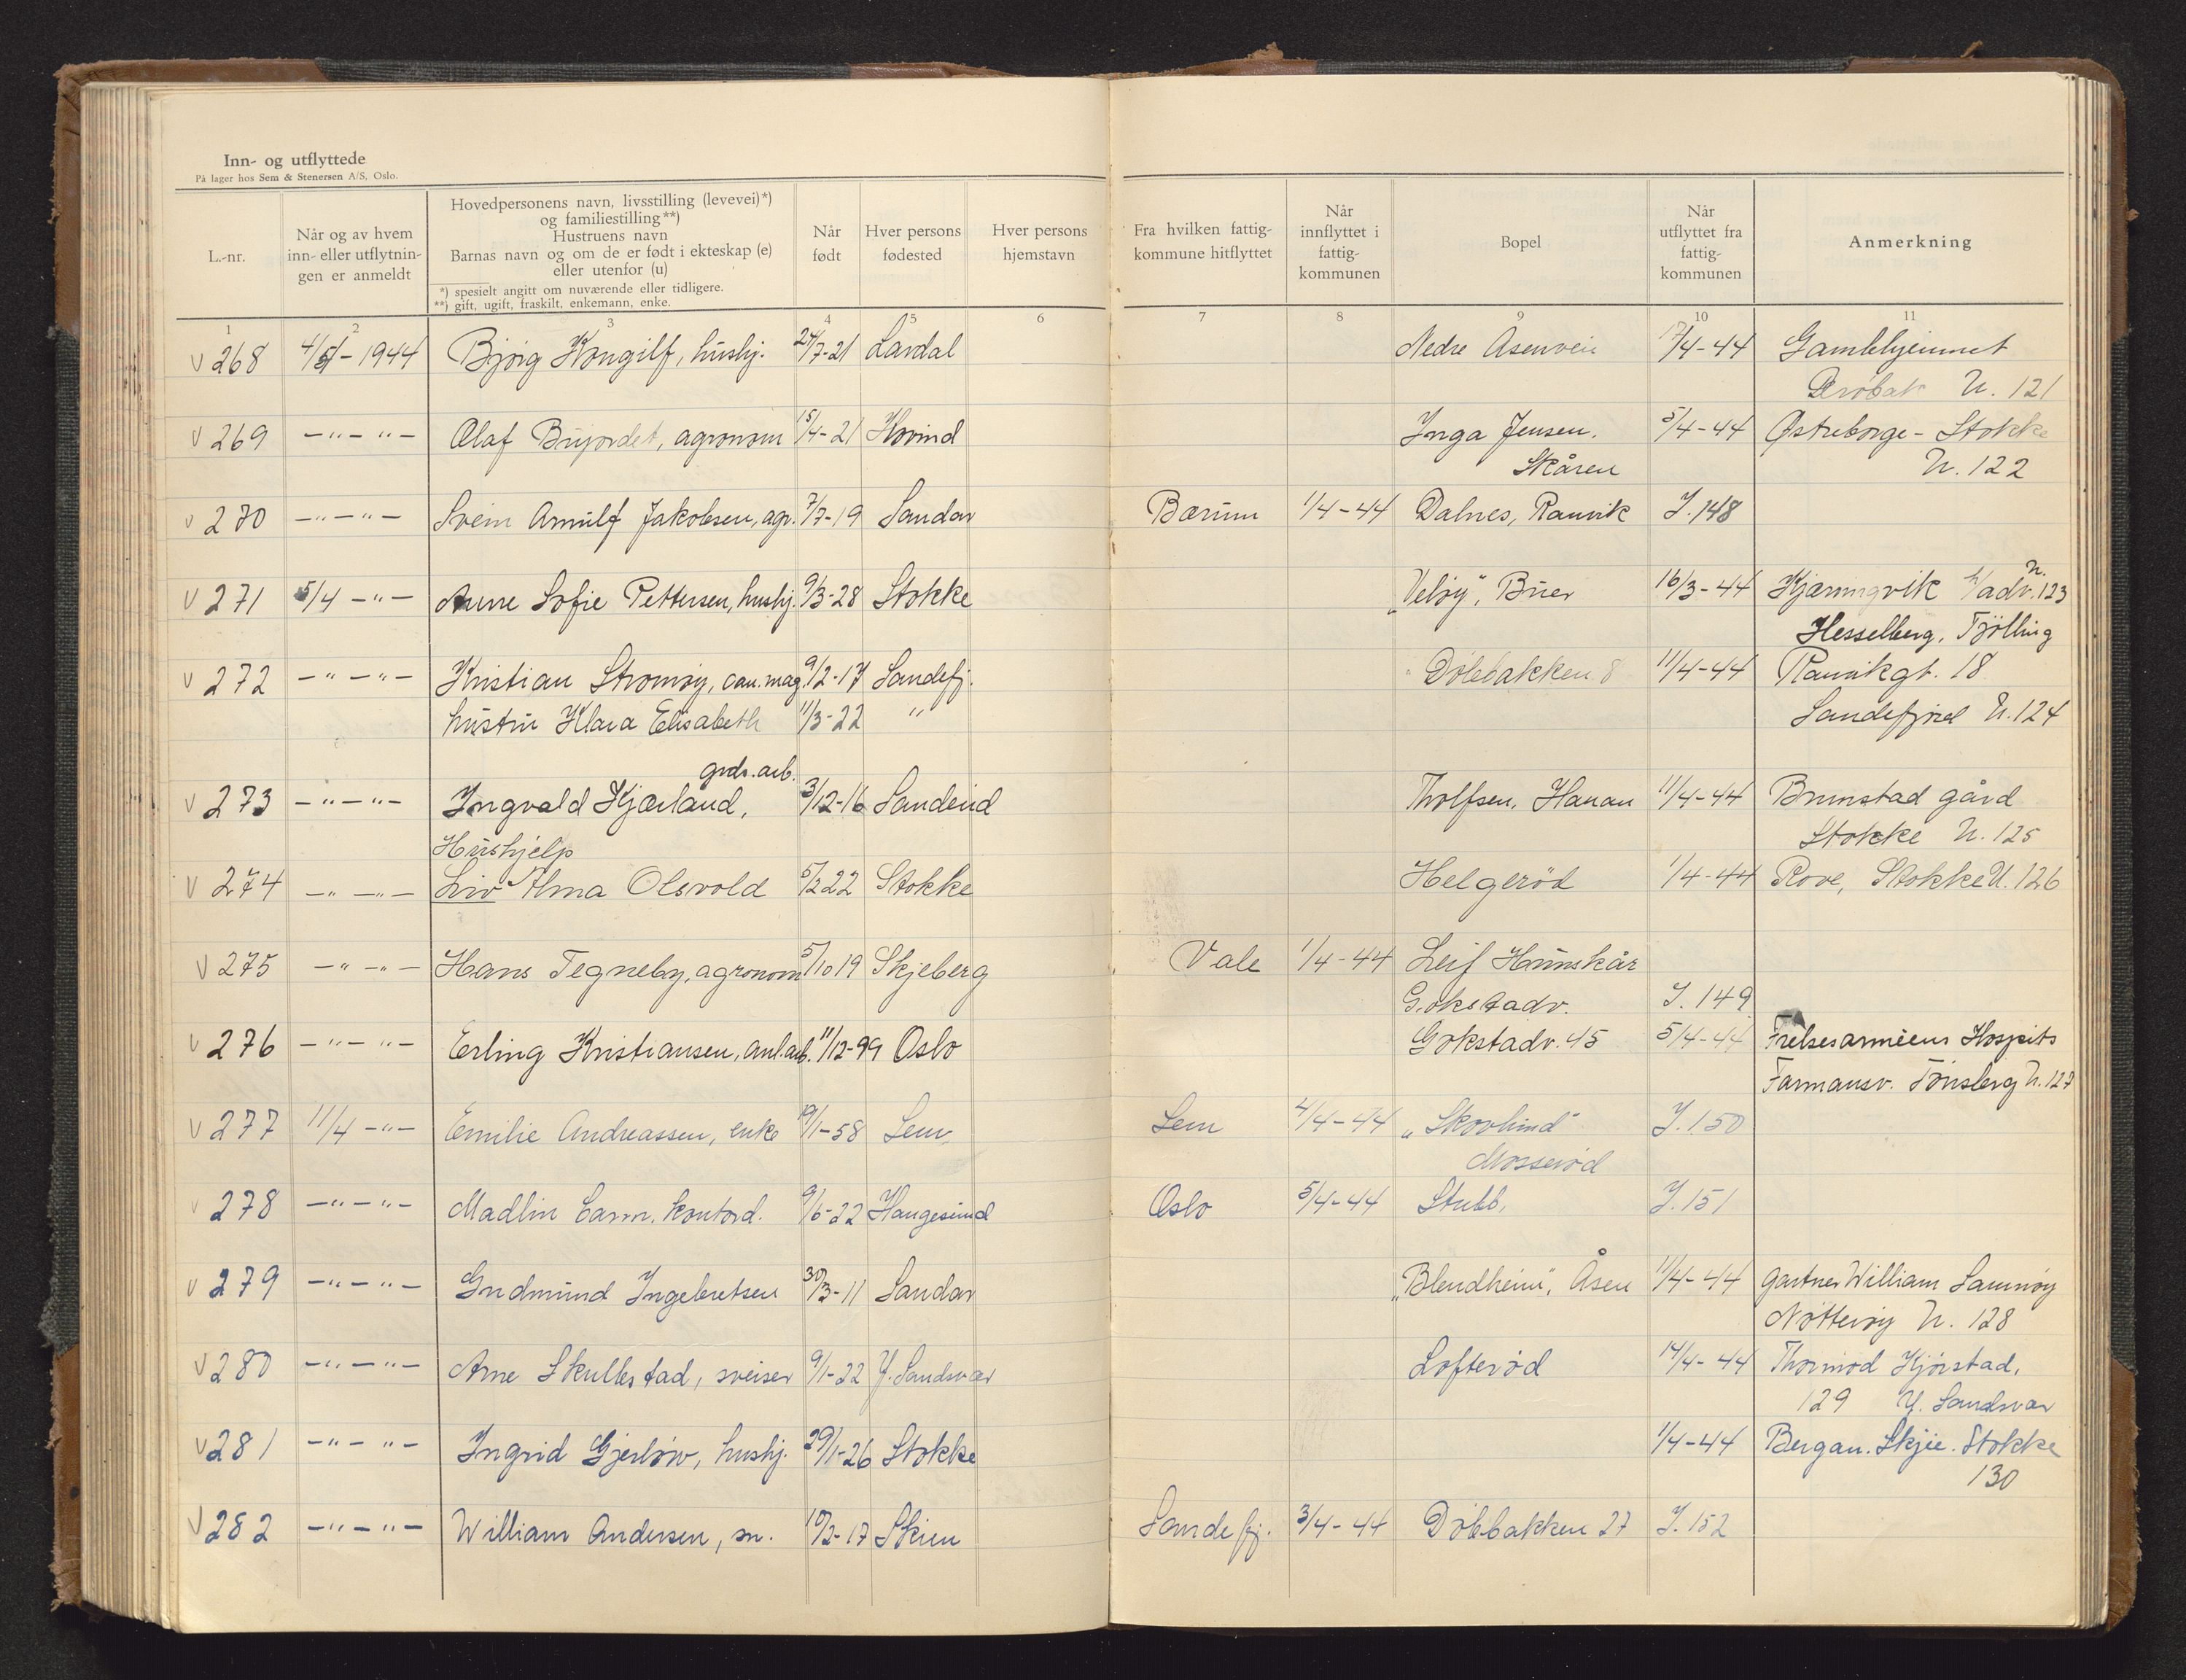 Inn- og utflyttede
På lager hos Sem & Stenersen A/S, Oslo.
L.-nr.
Når og av hvem
inn- eller utflytnin-
gen er anmeldt
Hovedpersonens navn, livsstilling (levevei)*)
og familiestilling**)
Hustruens navn
Barnas navn og om de er født i ekteskap (e)
eller utenfor (u)
*) spesielt angitt om nuværende eller tidligere.
**) gift, ugift, fraskilt, enkemann, enke.
Når
født
Hver persons
fødested
Hver persons
hjemstavn
Fra hvilken fattig-
kommune hitflyttet
Når
innflyttet i
fattig-
kommunen
Bopel
Når
utflyttet fra
fattig-
kommunen
Anmerkning
1 2 3 4 5 6 7 8 9 10 11
V 268 4/5-1944 Bjørg Kongilf, hushj. 24/7-21 Lardal Nedre Åsenveien 17/4-44 Gamlehjemmet
Drøbak U. 121
V 269 -"-"- Olaf Bujordet, agronom 15/4-21 Hovind Inga Jensen. 5/4-44 Østreborge - Stokke
Skåren U. 122
V 270 -"-"- Svein Arnulf Jakobsen, agr. 7/7-19 Sandar Bærum 1/4-44 Dalnes, Ranvik I. 148
V 271 5/4 -"- Anne Sofie Pettersen, hushj. 9/3-28 Stokke "Veløy", Buer 16/3-44 Kjærringvik v/adv. U. 123
Hesselberg, Tjölling
V 272 -"-"- Kristian Stromøy, can. mag. 9/12-17 Sandefj. Dölebakken 8 11/4-44 Ranvikgt. 18
hustru Klara Elisabeth 11/3-22 " Sandefjord U. 124
grds. arb.
V 273 -"-"- Ingvald Kjærland, 3/12-16 Sandeid Tholfsen, Hauan 11/4-44 Brunstad gård
Stokke U. 125
Hushjelp
V 274 -"-"- Liv Alma Olsvold 5/2 22 Stokke Helgerød 1/4-44 Rove, Stokke U. 126
V 275 -"-"- Hans Tegneby, agronom 5/10 19 Skjeberg Vale 1/4-44 Leif Hunskår
Gokstadv. I. 149
V 276 -"-"- Erling Kristiansen, anl.arb. 11/12-99 Oslo Gokstadv. 45 5/4-44 Frelsesarméens Hospits
Farmansv. Tönsberg U. 127
V 277 11/4 -"- Emilie Andreassen, enke 19/1-58 Sem Sem 4/4-44 "Skovlund"  I. 150
Mosserød
V 278 -"-"- Madlin Carm. kontord. 9/6-22 Haugesund Oslo 5/4-44 Stubb, I. 151
V 279 -"-"- Gudmund Ingebretsen 30/3-11 Sandar "Blendheim", Åsen 11/4-44 gartner William Samnøy
Nøtterøy U. 128
V 280 -"-"- Arne Skullestad, sveiser 9/1-22 Y. Sandsvær Lofterød 14/4-44 Thormod Hjörstad,
129 Y. Sandsvær
V 281 -"-"- Ingrid Gjerløw, hushj. 29/1-26 Stokke 1/4-44 Bergan. Skjee. Stokke
130
V 282 -"-"- William Andersen, sn. 10/2-17 Skien Sandefj. 3/4-44 Dölebakken 27 I. 152